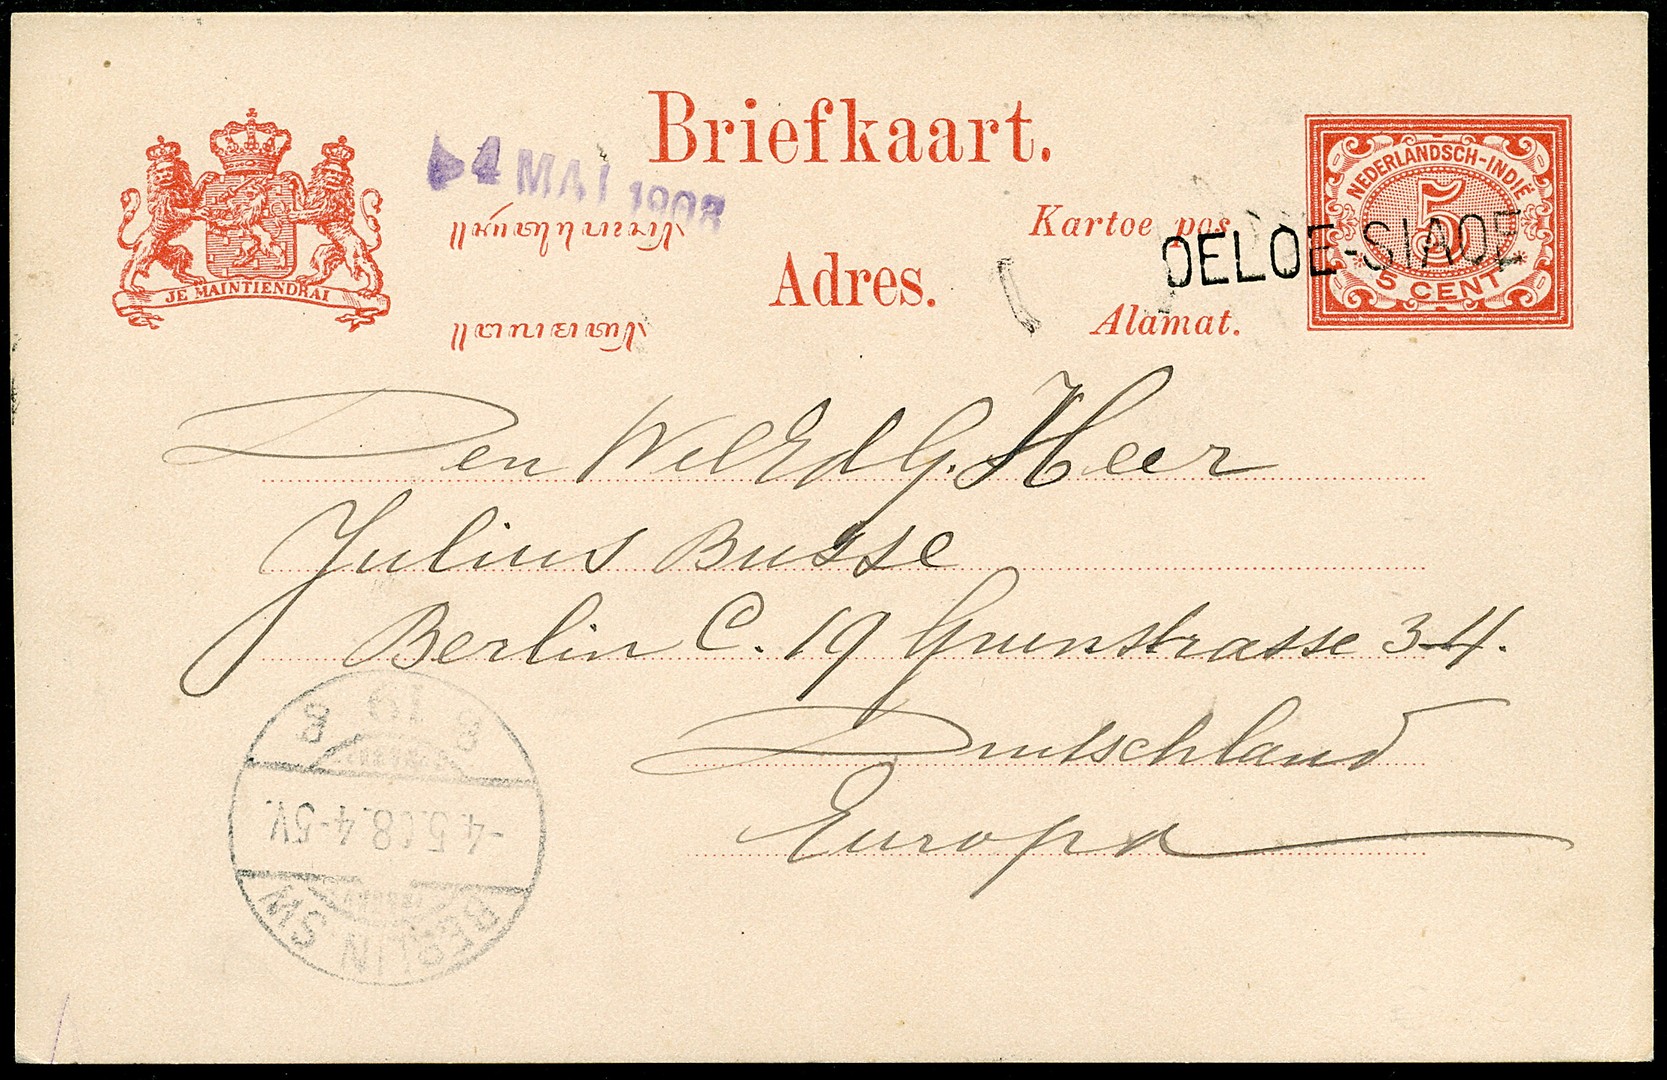 Briefkaart.
JE MAINTIENDRAI
4 MAI 1908
Kartoe pos
Adres.
Alamat.
NEDERLANDSCH-INDIË
5
5 CENT
OELOE-SIAOE
Den WelEdG. Heer
Julius Busse
Berlin C. 19 Grunstrasse 3-4.
Deutschland
Europa
BERLIN SW
-4.5.08.4-5V.
8 19 8